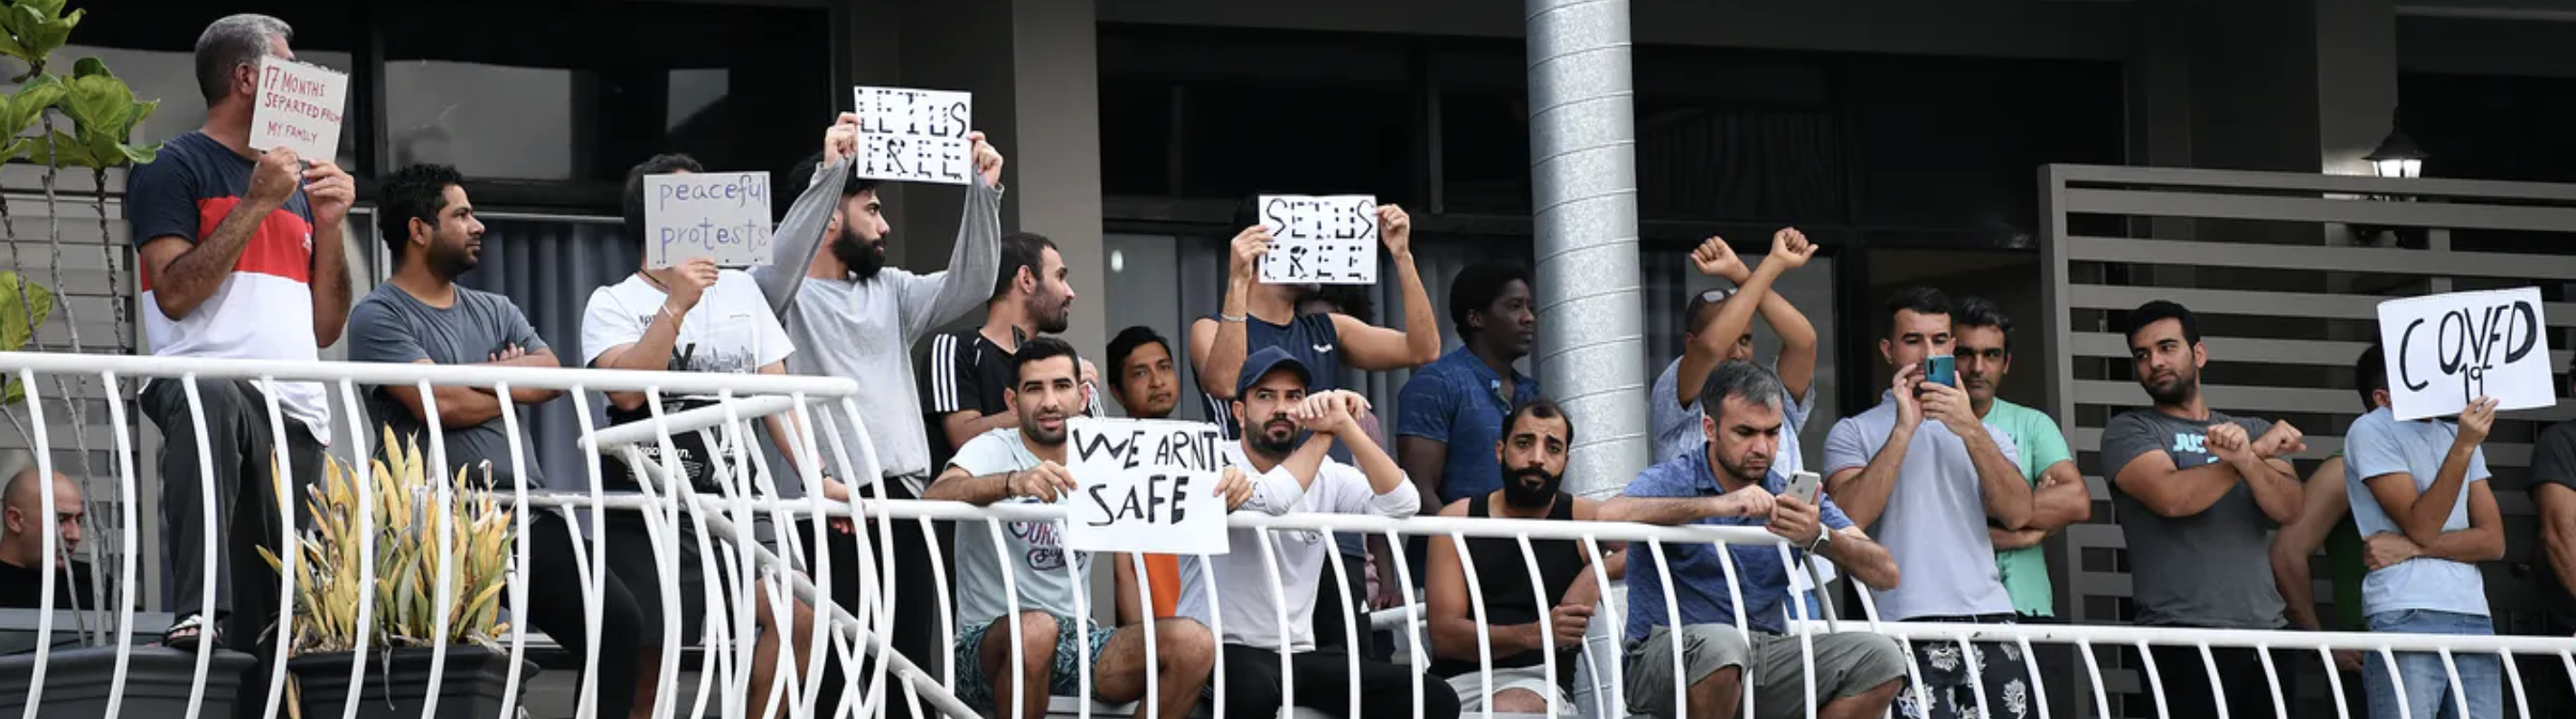 17 MONTHS
SEPARTED FROM
MY FAMILY
peaceful
protests
LET US
FREE
SET US
FREE
WE ARNT
SAFE
COVED
19
JUS